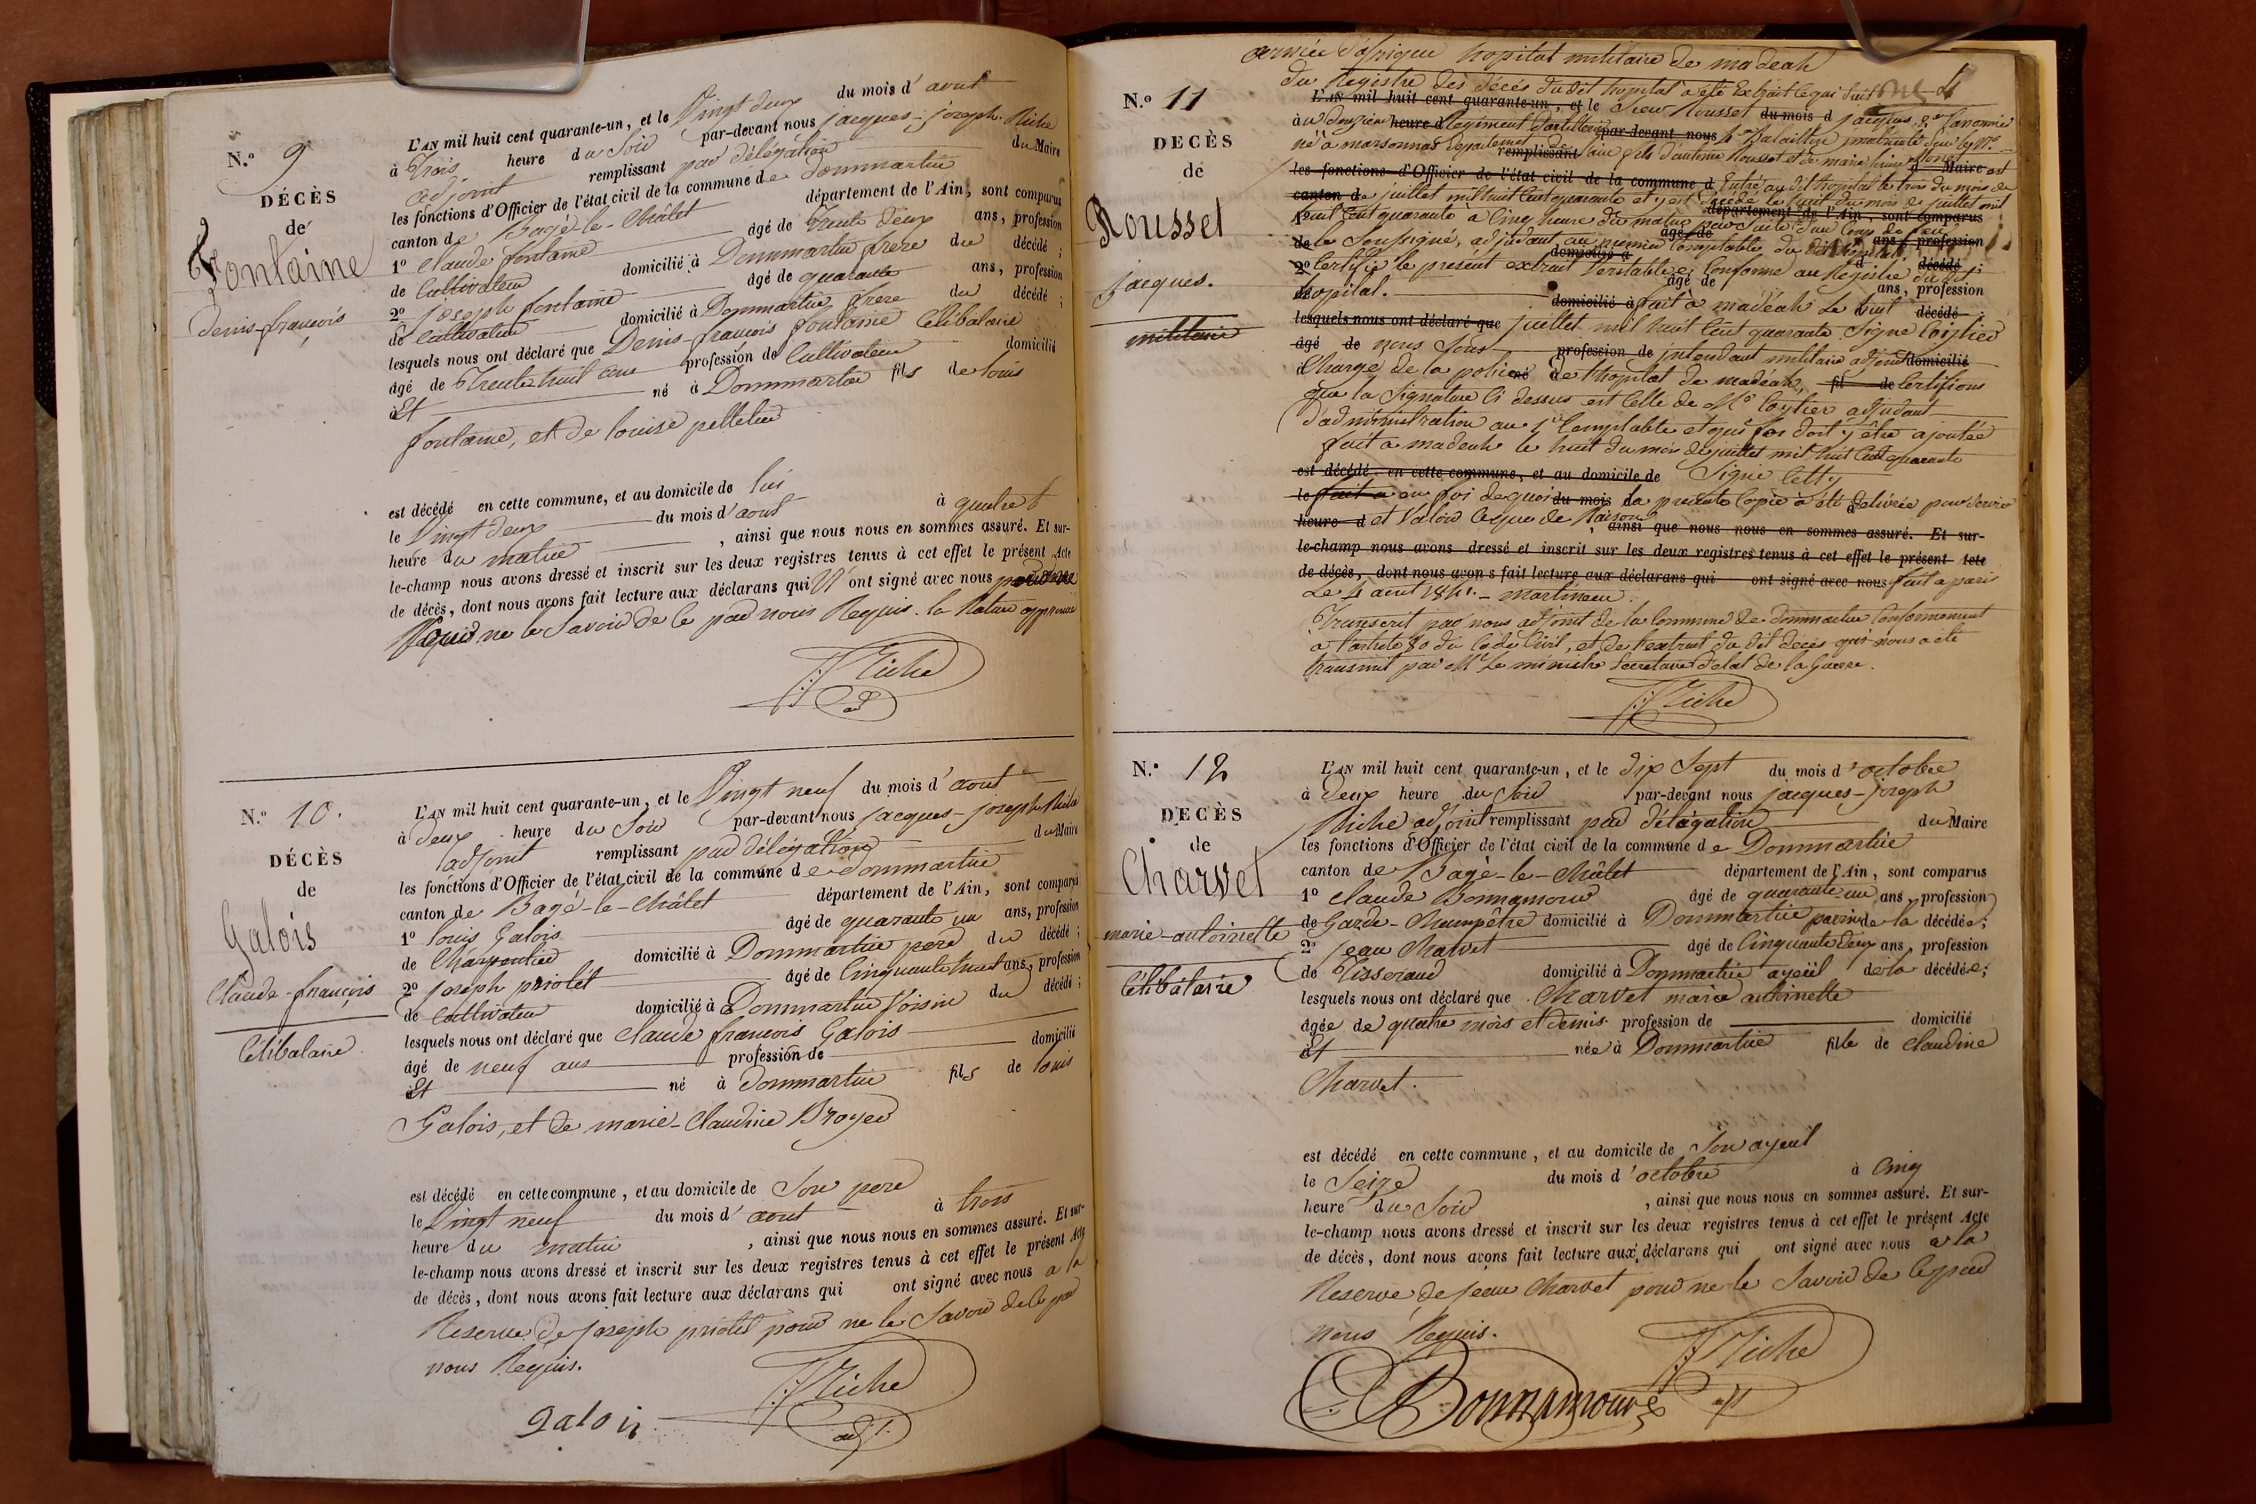 N.º 9
DÉCÈS
de
Fontaine
Denis-françois
L'AN mil huit cent quarante-un, et le Vingt deux du mois d'aout
à Trois heure du Soir par-devant nous jacques-joseph Riche
adjoint remplissant par délégation du Maire
les fonctions d'Officier de l'état civil de la commune de Dommartin
canton de Bagé-le-Châtel département de l'Ain, sont comparus
1º Claude fontaine âgé de Trente deux ans, profession
de Cultivateur domicilié à Dommartin frere du décédé;
2º joseph fontaine âgé de quarante ans, profession
de Cultivateur domicilié à Dommartin frere du décédé;
lesquels nous ont déclaré que Denis-françois fontaine Célibataire
âgé de Trente huit ans profession de Cultivateur domicilié
à Et né à Dommartin fils de louis
fontaine, et de louise pelletier
est décédé en cette commune, et au domicile de lui
le Vingt deux du mois d'aout à quatre
heure du matin, ainsi que nous nous en sommes assuré. Et sur-
le-champ nous avons dressé et inscrit sur les deux registres tenus à cet effet le présent Acte
de décès, dont nous avons fait lecture aux déclarans qui N'ont signé avec nous
ne le Savoir de le par nous Requis. la Rature approuvée
Riche
N.º 10.
DÉCÈS
de
Galois
Claude-françois
Célibataire
L'AN mil huit cent quarante-un, et le Vingt neuf du mois d'aout
à Deux heure du Soir par-devant nous jacques-joseph Riche
adjoint remplissant par délégation du Maire
les fonctions d'Officier de l'état civil de la commune de Dommartin
canton de Bagé-le-Châtel département de l'Ain, sont comparus
1º louis Galois âgé de quarante un ans, profession
de Charpentier domicilié à Dommartin pere du décédé;
2º joseph priolet âgé de Cinquante huit ans, profession
de Cultivateur domicilié à Dommartin Voisin du décédé;
lesquels nous ont déclaré que Claude françois Galois
âgé de neuf ans profession de domicilié
à Et né à Dommartin fils de louis
Galois, et de marie-Claudine Broyer
est décédé en cette commune, et au domicile de Son pere
le Vingt neuf du mois d'aout à trois
heure du matin, ainsi que nous nous en sommes assuré. Et sur-
le-champ nous avons dressé et inscrit sur les deux registres tenus à cet effet le présent Acte
de décès, dont nous avons fait lecture aux déclarans qui ont signé avec nous a la
Reserve de joseph priolet pour ne le Savoir de le par
nous Requis.
Riche
Galois adj.
N.º 11
DÉCÈS
de
Rousset
jacques.
militaire
armée d'afrique hopital militaire de madeah
du Registre des décès dudit hopital a été Extrait ce qui Suit
L'AN mil huit cent quarante-un, et le Sieur Rousset du mois d jacques
au douzieme heure d Regiment d'artillerie par-devant nous
né à marsonnas Departement remplissant l'ain fils d'antoine Rousset et de marie
les fonctions d'Officier de l'état civil de la commune d Maire Entré au dit hopital le trois du mois de
canton de juillet mil huit Cent quarante et y est Décédé le huit du mois de juillet mil
huit Cent quarante à Cinq heure du matin par Suite d'un Coup de feu département de l'Ain, sont comparus
de le Soussigné, adjudant au premier Comptable du dit hopital âgé de ans, profession
2º Certifie le présent extrait Veritable et Conforme au Registre du dit domicilié à décédé;
hopital. âgé de ans, profession
domicilié à fait à madéah Le huit décédé
lesquels nous ont déclaré que juillet mil huit Cent quarante Signé Coytier
âgé de nous Sous profession de intendant militaire adjoint domicilié
Chargé de la police né de l'hopital de madéah, fil de Certifions
que la Signature Ci dessus est Celle de Mr Coytier adjudant
d'administration au 1er Comptable et que foi doit y être ajoutée
fait a madeah le huit du mois de juillet mil huit Cent quarante
est décédé en cette commune, et au domicile de Signé Cetty
le fait a en foi de quoi du mois la présente Copie a été délivrée pour Servir
heure d et Valoir Ce que de Raison ainsi que nous nous en sommes assuré. Et sur-
le-champ nous avons dressé et inscrit sur les deux registres tenus à cet effet le présent Acte
de décès, dont nous avons fait lecture aux déclarans qui ont signé avec nous fait a paris
Le 4 aout 1841. - martineau.
Transcrit par nous adjoint de la Commune de Dommartin Conformement
a l'article 80 du Code Civil, et de l'extrait du dit décès qui nous a été
transmit par Mr Le ministre Secretaire d'etat de la Guerre.
Riche
N.º 12
DÉCÈS
de
Charvet
marie-antoinette
Célibataire
L'AN mil huit cent quarante-un, et le dix Sept du mois d'octobre
à Deux heure du Soir par-devant nous jacques-joseph
Riche adjoint remplissant par délégation du Maire
les fonctions d'Officier de l'état civil de la commune de Dommartin
canton de Bagé-le-Châtel département de l'Ain, sont comparus
1º Claude Bonnamour âgé de quarante un ans, profession
de Garde-Champêtre domicilié à Dommartin parin de la décédée;
2º jean Charvet âgé de Cinquante Deux ans, profession
de Tisserand domicilié à Dommartin ayeül de la décédée;
lesquels nous ont déclaré que Charvet marie antoinette
âgée de quatre mois et demis profession de domicilié
à Et née à Dommartin fille de Claudine
Charvet.
est décédé en cette commune, et au domicile de Son ayeul
le Seize du mois d'octobre à Cinq
heure du Soir, ainsi que nous nous en sommes assuré. Et sur-
le-champ nous avons dressé et inscrit sur les deux registres tenus à cet effet le présent Acte
de décès, dont nous avons fait lecture aux déclarans qui ont signé avec nous a la
Reserve de jean Charvet pour ne le Savoir de le par
nous Requis.
Riche
Bonnamour